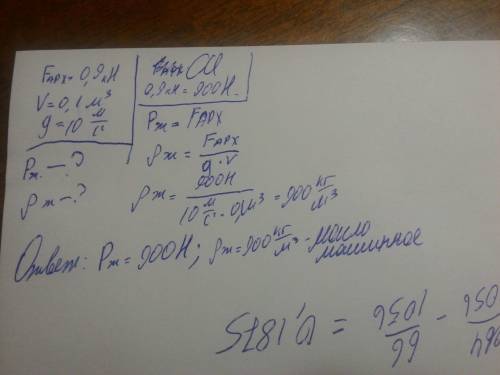 Fарх = 0,9кН
V = 0,1 м³
g = 10 м/с
Pж. — ?
ρж — ?
СИ
0,9кН = 900Н.
Pж = Fарх
ρж = Fарх / g · V
ρж = 900Н / 10 м/с · 0,1м³ = 900 кг/м³
Ответ: Pж = 900Н; ρж = 900 кг/м³ - масло
машинное
66/1056 = 0,1875